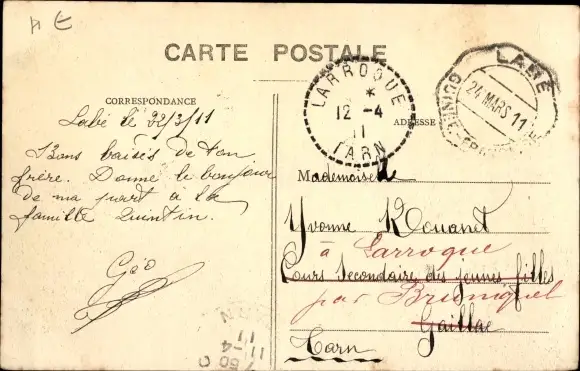 CARTE POSTALE
CORRESPONDANCE
Labé le 22/3/11
Bons baisés de ton
frère. Donne le bonjour
de ma part à la
famille Quintin.
Géo
LARROQUE
*
12 -4
11
TARN
LABÉ
24 MARS 11
ADRESSE
Mademoiselle
Yvonne Rouanet
à Larroque
Cours Secondaire des jeunes filles
par Bruniquel
Gaillac
Tarn